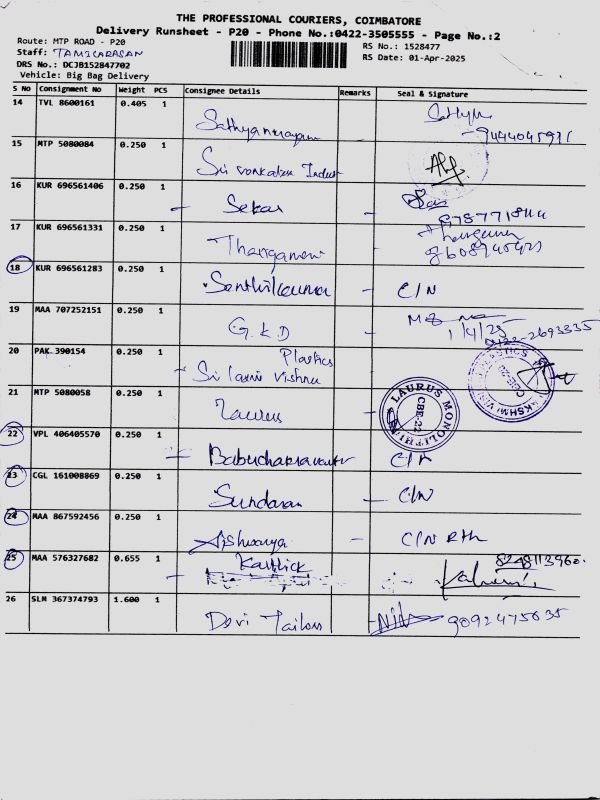 THE PROFESSIONAL COURIERS, COIMBATORE
Delivery Runsheet - P20 - Phone No.:0422-3505555 - Page No.:2
Route: MTP ROAD - P20
RS No.: 1528477
Staff: TAMILARASAN
RS Date: 01-Apr-2025
DRS No.: DCJB152847702
Vehicle: Big Bag Delivery
S No Consignment No Weight PCS Consignee Details Remarks Seal & Signature
14 TVL 8600161 0.405 1
15 MTP 5080084 0.250 1 Sri
16 KUR 696561406 0.250 1 - Sekar -
17 KUR 696561331 0.250 1 Thangamani -
18 KUR 696561283 0.250 1 Senthilkumar - C/N
19 MAA 707252151 0.250 1 G.K.D -
1/4/25
20 PAK 390154 0.250 1 Plastics
- Sri Laxmi Vishnu -
21 MTP 5080058 0.250 1 Laurus - LAURUS MONOLITHIC CBE-22
22 VPL 406405570 0.250 1 C/N
23 CGL 161008869 0.250 1 Sundaram - C/N
24 MAA 867592456 0.250 1 Aishwarya - C/N
25 MAA 576327682 0.655 1 Karthick - 8248113960
26 SLM 367374793 1.600 1 Devi Tailors 9092475635